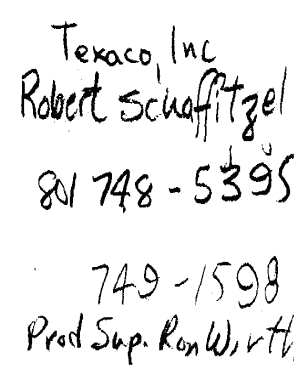 Texaco, Inc
Robert Schaffitzel
801 748-5395
749-1598
Prod Sup. Ron Wirth